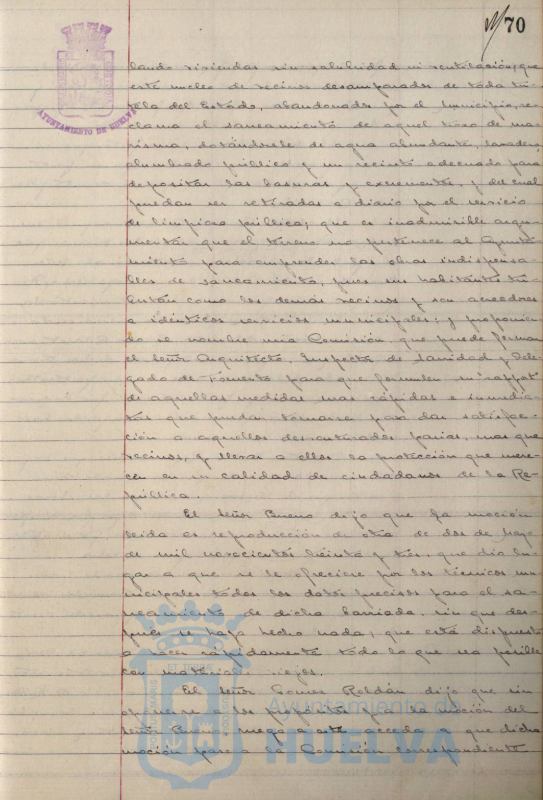 70
AYUNTAMIENTO DE HUELVA
viviendas sin salubridad ni ventilación, que
este nucleo de vecinos desamparados de toda tu-
tela del Estado, abandonados por el Municipio, re-
clama el saneamiento de aquel trozo de ma-
risma, dotándosele de agua abundante, lavadero,
alumbrado público y un recinto adecuado para
depositar las basuras y excrementos, y del cual
puedan ser retirados a diario por el servicio
de limpieza pública; que es inadmisible argu-
mentar que el terreno no pertenece al Ayunta-
miento para emprender las obras indispensa-
bles de saneamiento, pues sus habitantes tri-
butan como los demás vecinos y son acreedores
a idénticos servicios municipales; y proponien-
do se nombre una Comisión que puede formar
el Señor Arquitecto, Inspector de Sanidad y Dele-
gado de Fomento para que formulen su "rappot"
de aquellas medidas mas rápidas e inmedia-
tas que puedan tomarse para dar satisfac-
ción a aquellos desventurados parias, mas que
vecinos, y llevar a ellos la protección que mere-
cen en su calidad de ciudadanos de la Re-
pública.
El Señor Bueno dijo que la moción
leida es reproducción de otra de dos de Mayo
de mil novecientos treinta y tres, que dió lu-
gar a que se le ofreciere por los técnicos mu-
nicipales todos los datos precisos para el sa-
neamiento de dicha barriada, sin que des-
pués se haya hecho nada; que está dispuesto
a hacer rápidamente todo lo que sea posible
con materiales viejos.
El Señor Gomez Roldán dijo que sin
oponerse a los propósitos de la moción del
Señor Bueno ruega a este acceda a que dicha
moción pase a la Comisión correspondiente
Ayuntamiento de
HUELVA